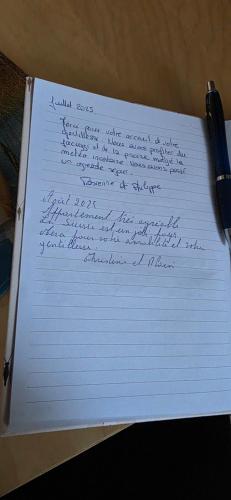 Juillet 2025
Merci pour votre accueil et votre
gentillesse. Nous avons profité du
jacuzzi et de la piscine malgré la
météo incertaine. Nous avons passé
un agréable séjour.
et Philippe
Août 2025
Appartement très agréable
La Suisse est un joli pays
Merci pour votre amabilité et votre
gentillesse.
Christine et Alain